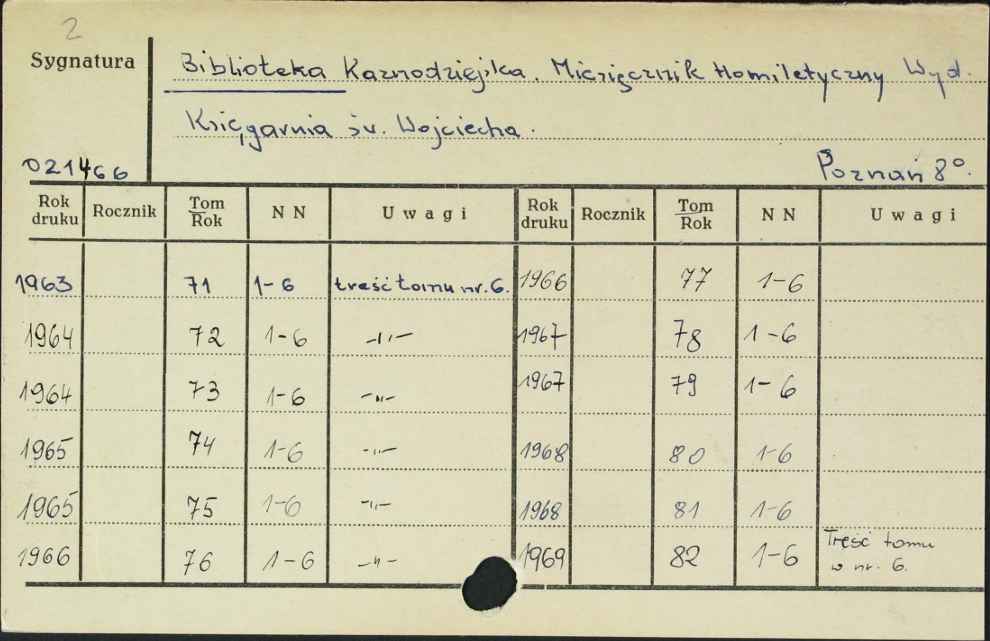 2
Sygnatura
Biblioteka Kaznodziejska. Miesięcznik Homiletyczny Wyd.
Księgarnia św. Wojciecha.
021466
Poznań 8°.
Rok druku Rocznik Tom/Rok N N Uwagi Rok druku Rocznik Tom/Rok N N Uwagi
1963 71 1-6 treść tomu nr. 6. 1966 77 1-6
1964 72 1-6 -"- 1967 78 1-6
1964 73 1-6 -"- 1967 79 1-6
1965 74 1-6 -"- 1968 80 1-6
1965 75 1-6 -"- 1968 81 1-6
1966 76 1-6 -"- 1969 82 1-6 Treść tomu
w nr. 6.